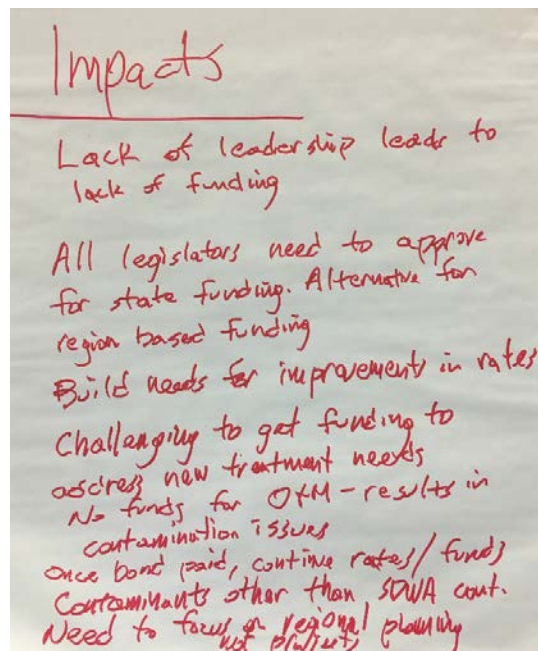 Impacts
Lack of leadership leads to
lack of funding
All legislators need to approve
for state funding. Alternative for
region based funding
Build needs for improvements in rates
Challenging to get funding to
address new treatment needs
No funds for O&M - results in
contamination issues
Once bond paid, continue rates/funds
Contaminants other than SDWA cont.
Need to focus on regional planning
not projects